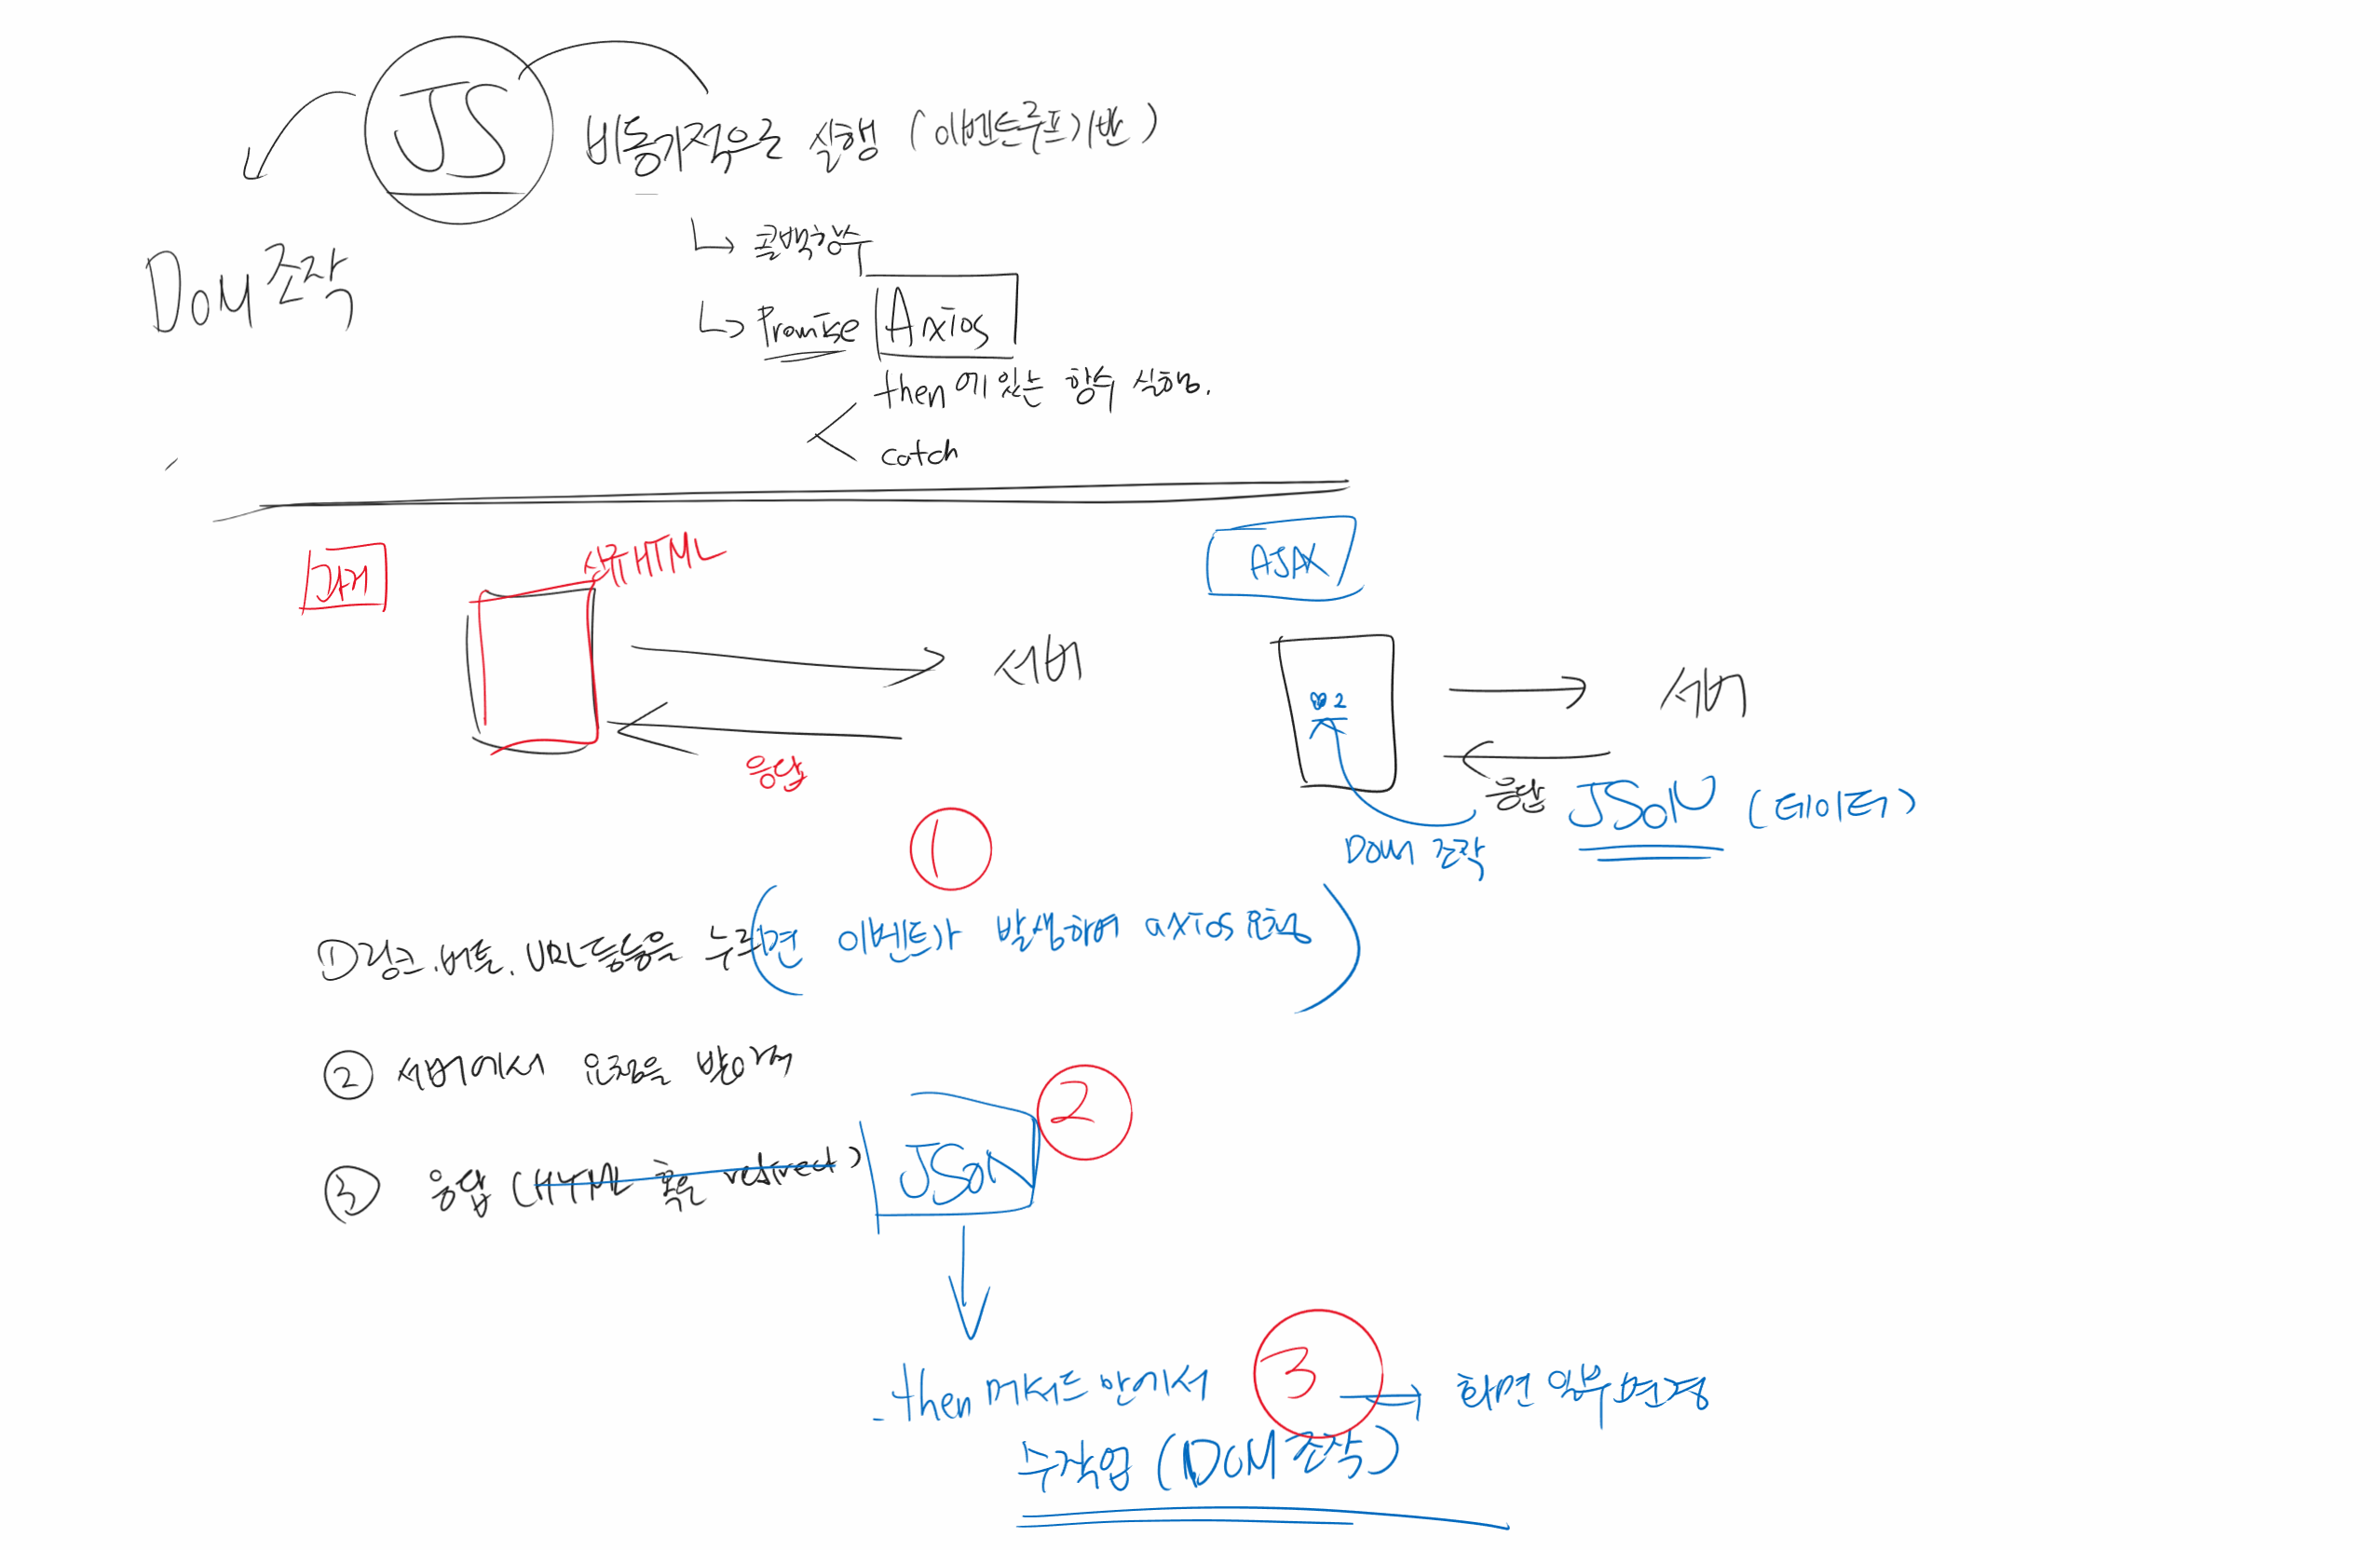 JS
비동기적으로 실행 (이벤트루프기반)
DOM 조작
콜백함수
Promise Axios
then에 있는 함수 실행.
catch
과거
새로운 HTML
AJAX
서버
응답
서버
응답 JSON (데이터)
DOM 조작
1
① 링크, 버튼, URL 등등을 누르(면 이벤트가 발생하여 axios 요청)
② 서버에서 요청을 받아서
2
③ 응답 (HTML 혹은 redirect) JSON
.then 메서드 안에서 3 → 화면 일부 변경
후작업 (DOM 조작)